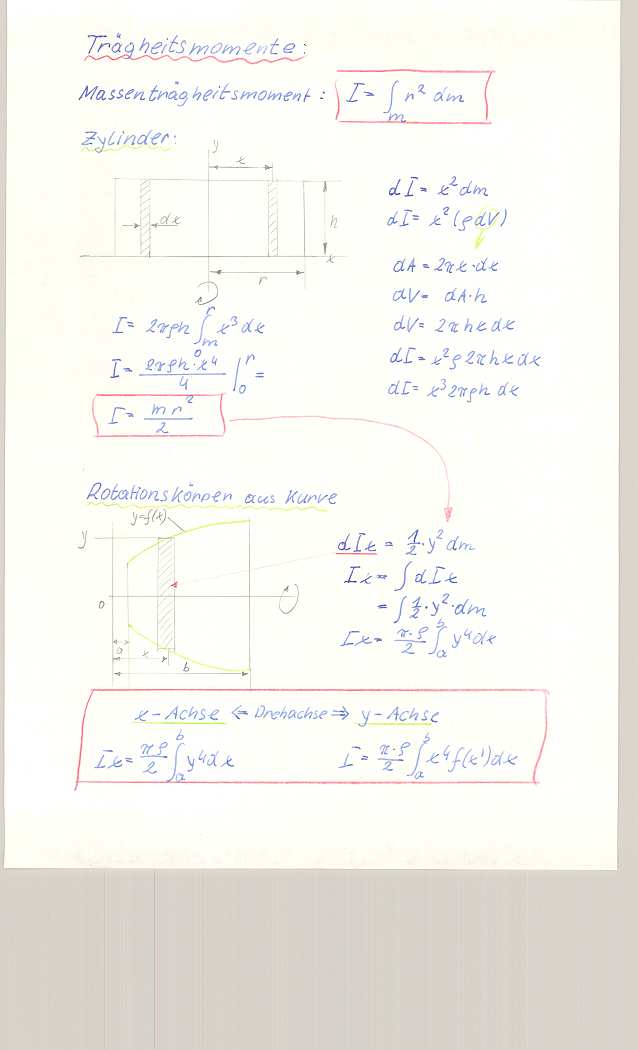 Trägheitsmomente:
Massenträgheitsmoment: I = ∫m r² dm
Zylinder:
y
x
dx
h
x
r
dI = x² dm
dI = x² (ρ dV)
dA = 2πx·dx
dV = dA·h
dV = 2πhx dx
dI = x² ρ 2πhx dx
dI = x³ 2πρh dx
I = 2πρh ∫m r x³ dx
I = 2πρh·x⁴ / 4 |₀ r =
I = mr² / 2
Rotationskörper aus Kurve
y=f(x)
y
0
a
x
b
dIx = 1/2·y² dm
Ix = ∫dIx
= ∫1/2·y²·dm
Ix = π·ρ/2 ∫a b y⁴dx
x-Achse ⇐ Drehachse ⇒ y-Achse
Ix = πρ/2 ∫a b y⁴dx
I = π·ρ/2 ∫a b x⁴ f(x')dx